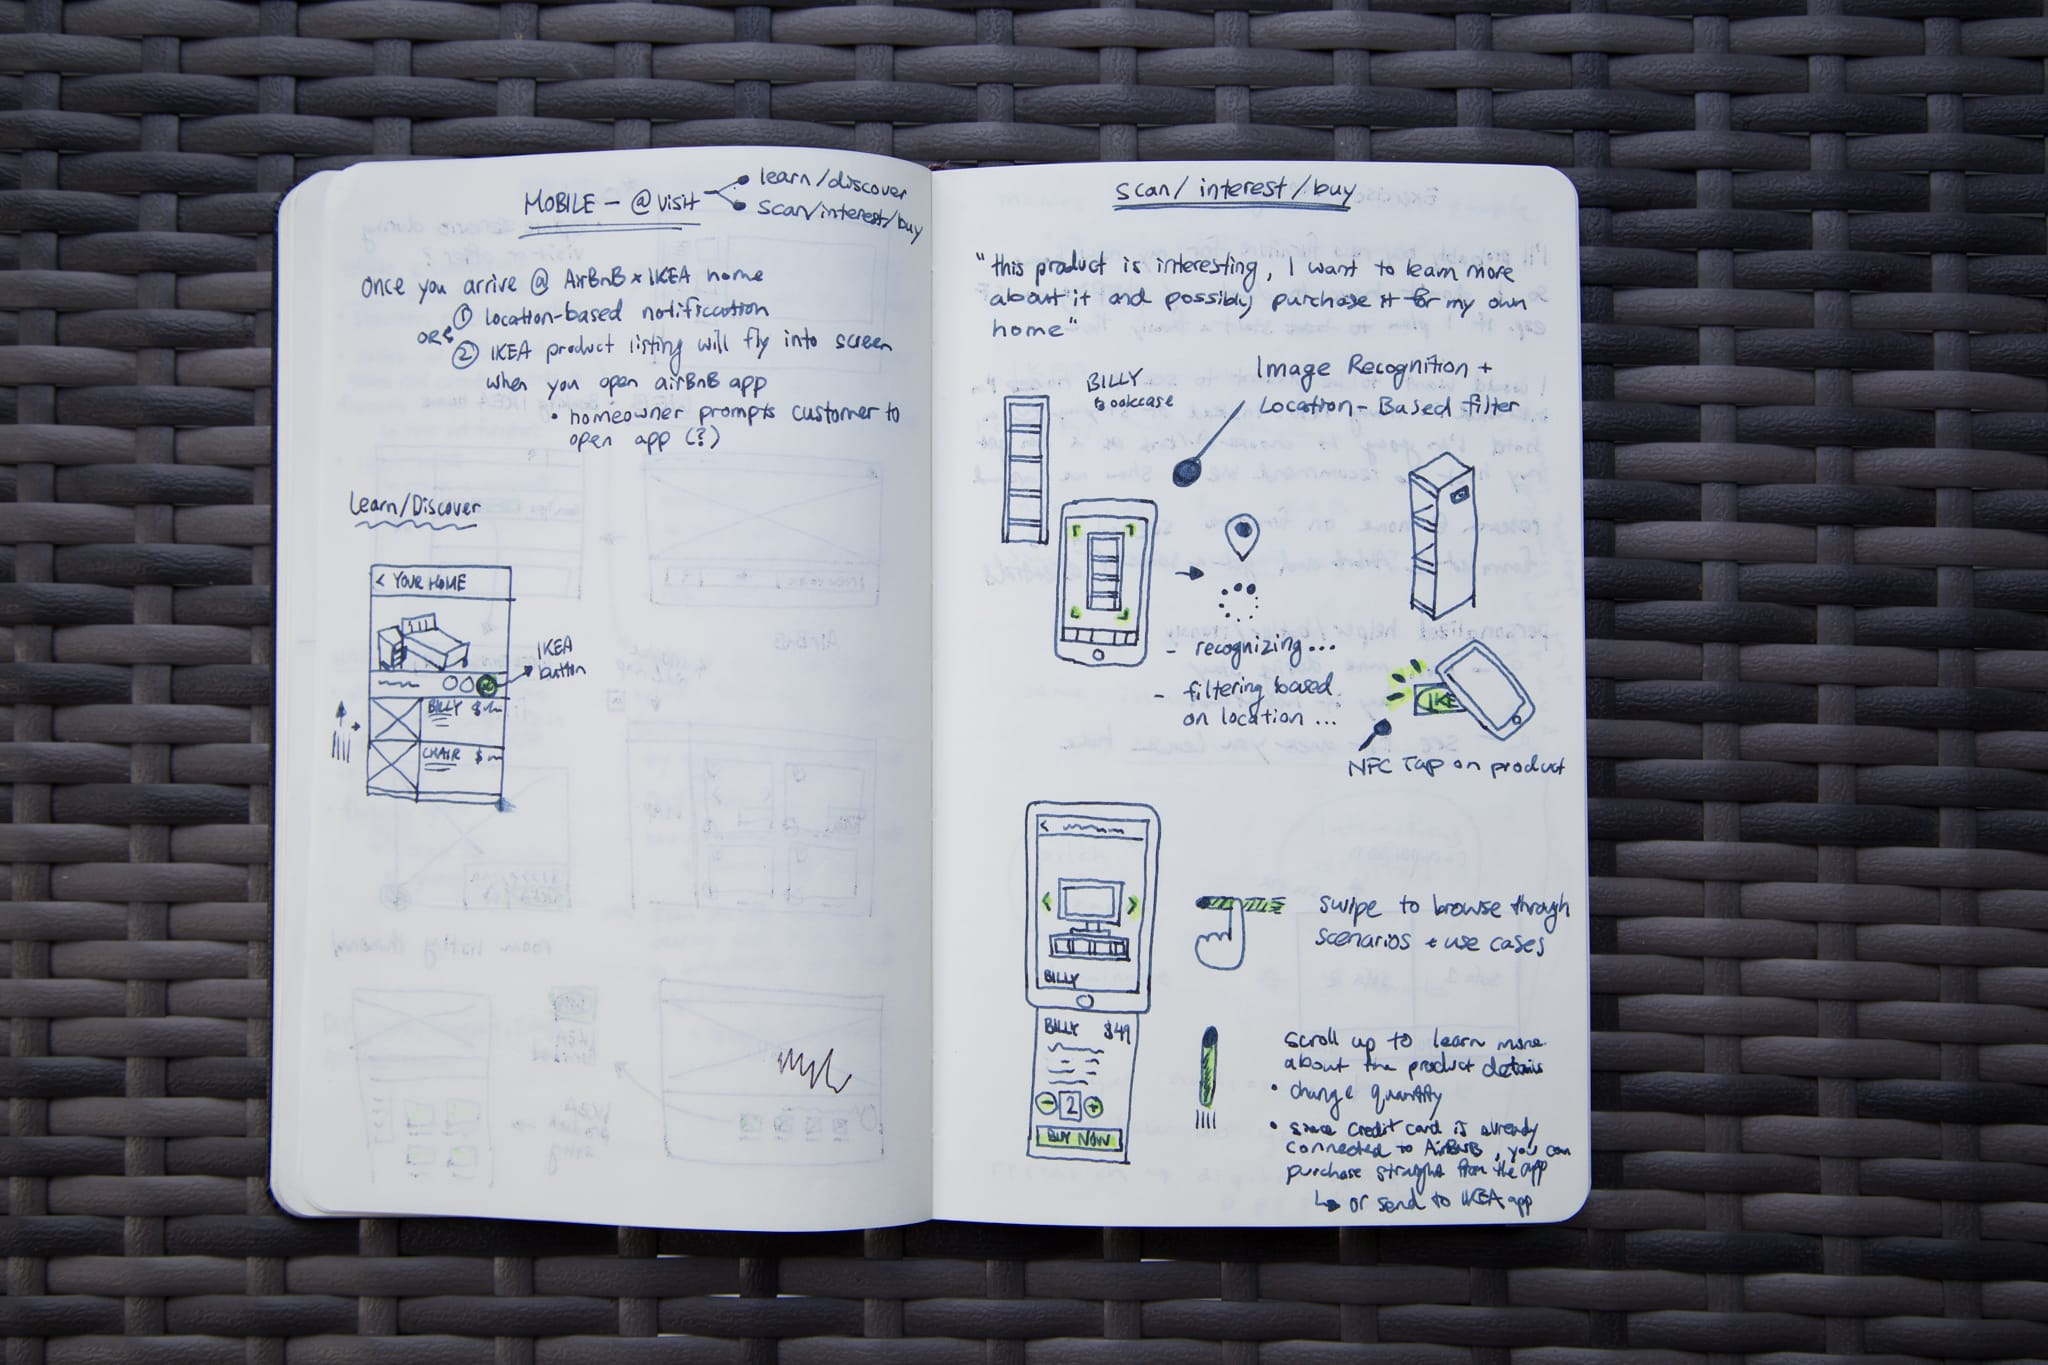 MOBILE - @ VISIT
learn/discover
scan/interest/buy
once you arrive @ AirBnB x IKEA home
① location-based notification
OR
② IKEA product listing will fly into screen
when you open airBnB app
• homeowner prompts customer to
open app (?)
Learn/Discover
< YOUR HOME
IKEA
button
BILLY $
CHAIR $
scan/interest/buy
"this product is interesting, I want to learn more
about it and possibly purchase it for my own
home"
BILLY
Bookcase
Image Recognition +
Location-Based filter
- recognizing...
- filtering based
on location...
IKE
NFC Tap on product
<
< >
BILLY
swipe to browse through
scenarios + use cases
BILLY $49
- 2 +
BUY NOW
scroll up to learn more
about the product details
• change quantity
• since credit card is already
connected to AirBnB, you can
purchase straight from the app
↳ or send to IKEA app